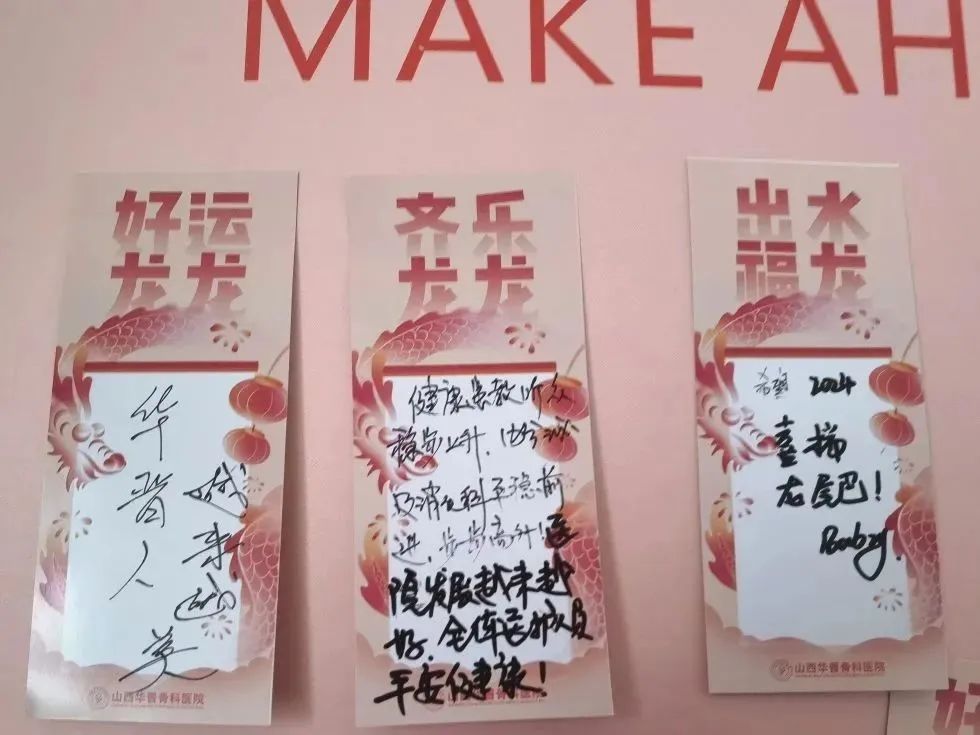 MAKE AH
好运
龙龙
华晋人
越来越美
山西华晋骨科医院
齐乐
龙龙
健康宣教听众
稳步上升,
及消化科平稳前
进,步步高升!医
院发展越来越
好,全体医护人员
平安健康!
山西华晋骨科医院
出水
福龙
希望 2024
喜揣
龙尾巴!
山西华晋骨科医院
好